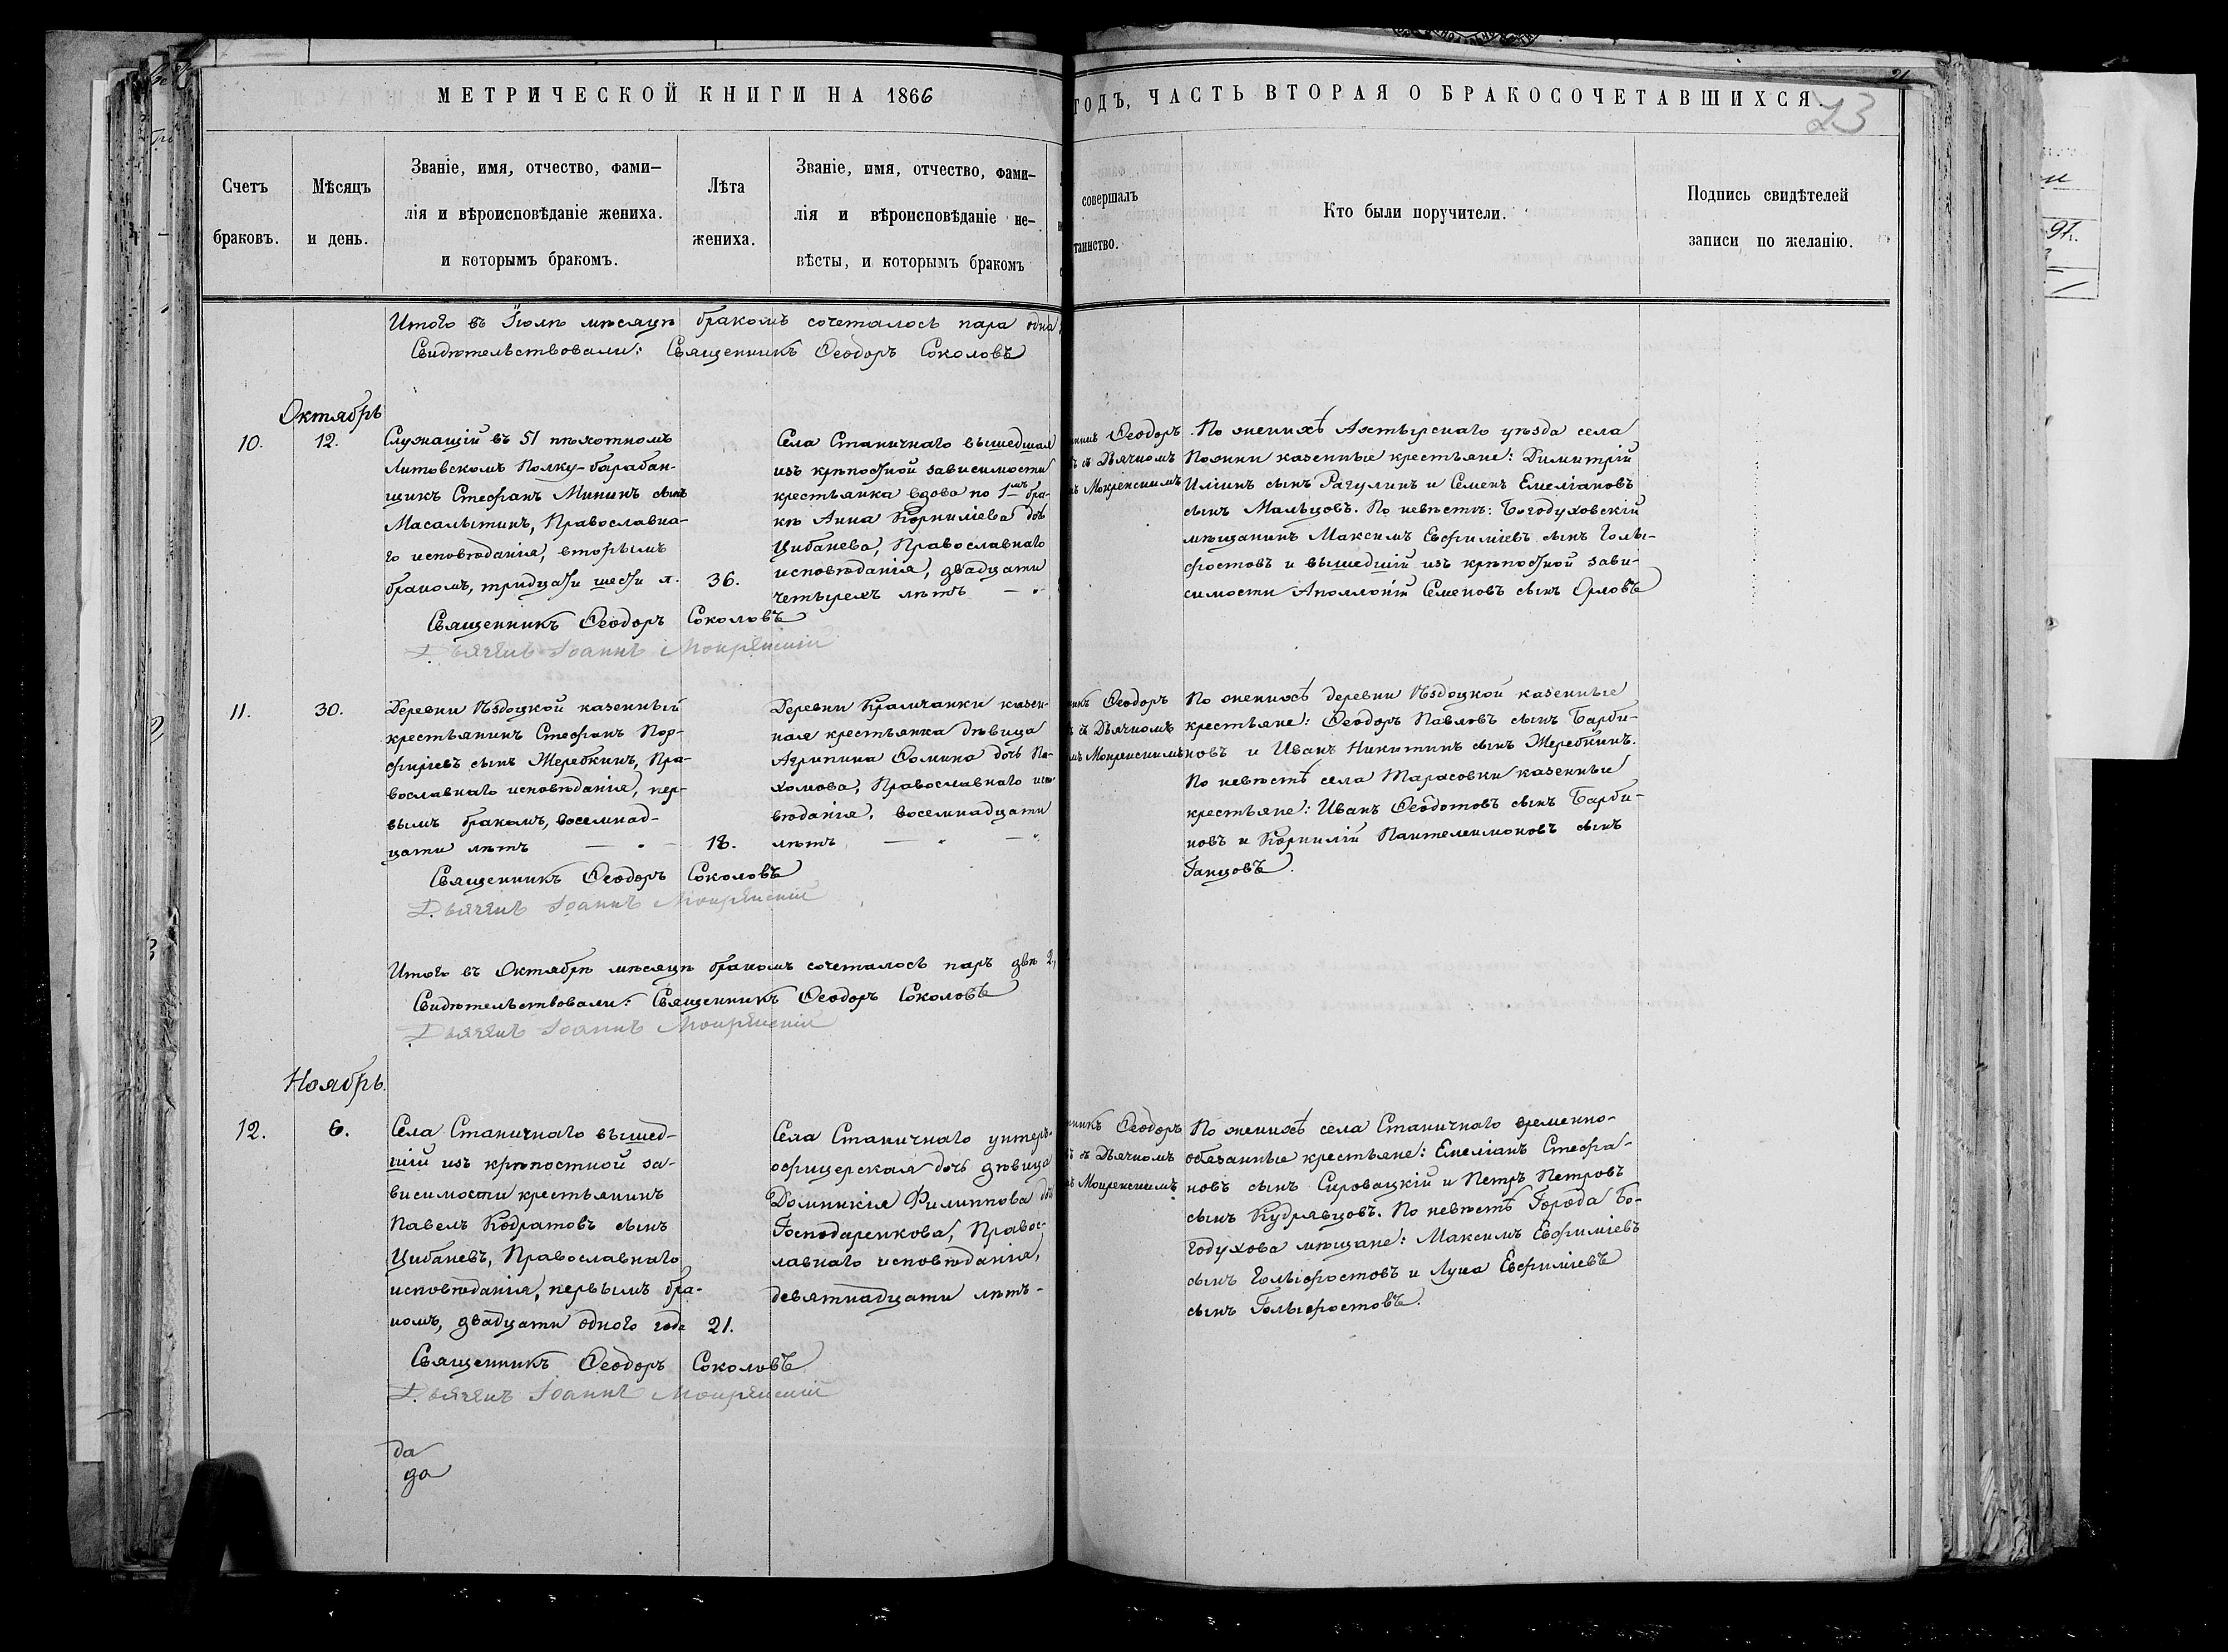 МЕТРИЧЕСКОЙ КНИГИ НА 1866
ГОДЪ, ЧАСТЬ ВТОРАЯ О БРАКОСОЧЕТАВШИХСЯ.
23
Счетъ
браковъ.
Мѣсяцъ
и день.
Званіе, имя, отчество, фами-
лія и вѣроисповѣданіе жениха.
и которымъ бракомъ.
Лѣта
жениха.
Званіе, имя, отчество, фами-
лія и вѣроисповѣданіе не-
вѣсты, и которымъ бракомъ
совершалъ
таинство.
Кто были поручители.
Подпись свидѣтелей
записи по желанію.
Итого въ Іюлѣ мѣсяцѣ бракомъ сочеталось пара одна
Свидѣтельствовали: Священникъ Ѳеодоръ Соколовъ
Октябрь
10.
12.
Служащій въ 51 пѣхотномъ
Литовскомъ Полку-барабан-
щикъ Стефанъ Мининъ сынъ
Масалытинъ, Православна-
го исповѣданія, вторымъ
бракомъ, тридцати шести л.
36.
Села Станичнаго вышедшая
изъ крѣпостной зависимости
крестьянка вдова по 1мъ бра-
кѣ Анна Корниліева дочь
Цибанева, Православнаго
исповѣданія, двадцати
четырехъ лѣтъ
Ѳеодоръ
съ Дьячкомъ
Мокренскимъ
По женихѣ Ахтырскаго уѣзда села
Пожни казенные крестьяне: Димитрій
Иліинъ сынъ Рагулинъ и Семенъ Емеліановъ
сынъ Мальцовъ. По невѣстѣ: Богодуховскій
мѣщанинъ Максимъ Евфиміевъ сынъ Голы-
фостовъ и вышедшій изъ крѣпостной зави-
симости Аполлоній Семеновъ сынъ Орловъ
Священникъ Ѳеодоръ Соколовъ
Дьячекъ Іоаннъ Мокренскій
11.
30.
Деревни Ѣздоцкой казенный
крестьянинъ Стефанъ Пор-
фиріевъ сынъ Жеребкинъ, Пра-
вославнаго исповѣданія, пер-
вымъ бракомъ, восемнад-
цати лѣтъ
18.
Деревни Крамчанки казен-
ная крестьянка дѣвица
Агрипина Ѳомина дочь Па-
хомова, Православнаго испо-
вѣданія, восемнадцати
лѣтъ
Ѳеодоръ
съ Дьячкомъ
Мокренскимъ
По женихѣ деревни Ѣздоцкой казенные
крестьяне: Ѳеодоръ Павловъ сынъ Барби-
новъ и Иванъ Никитинъ сынъ Жеребкинъ.
По невѣстѣ села Тарасовки казенные
крестьяне: Иванъ Ѳеодотовъ сынъ Барби-
новъ и Корнилій Пантелеимоновъ сынъ
Ганцовъ.
Священникъ Ѳеодоръ Соколовъ
Дьячекъ Іоаннъ Мокренскій
Итого въ Октябрѣ мѣсяцѣ бракомъ сочеталось паръ двѣ 2,
Свидѣтельствовали: Священникъ Ѳеодоръ Соколовъ
Дьячекъ Іоаннъ Мокренскій
Ноябрь.
12.
6.
Села Станичнаго вышед-
шій изъ крѣпостной за-
висимости крестьянинъ
Павелъ Кодратовъ сынъ
Цибаневъ, Православнаго
исповѣданія, первымъ бра-
комъ, двадцати одного года
21.
Села Станичнаго унтеръ-
офицерская дочь дѣвица
Домникія Филиппова дочь
Господаренкова, Правос-
лавнаго исповѣданія,
девятнадцати лѣтъ-
Ѳеодоръ
съ Дьячкомъ
Мокренскимъ
По женихѣ села Станичнаго временно-
обязанные крестьяне: Емеліанъ Стефа-
новъ сынъ Сыровацкій и Петръ Петровъ
сынъ Кудрявцовъ. По невѣстѣ Города Бо-
годухова мѣщане: Максимъ Евфиміевъ
сынъ Голыфостовъ и Лука Евфиміевъ
сынъ Голыфостовъ.
Священникъ Ѳеодоръ Соколовъ
Дьячекъ Іоаннъ Мокренскій
да
да